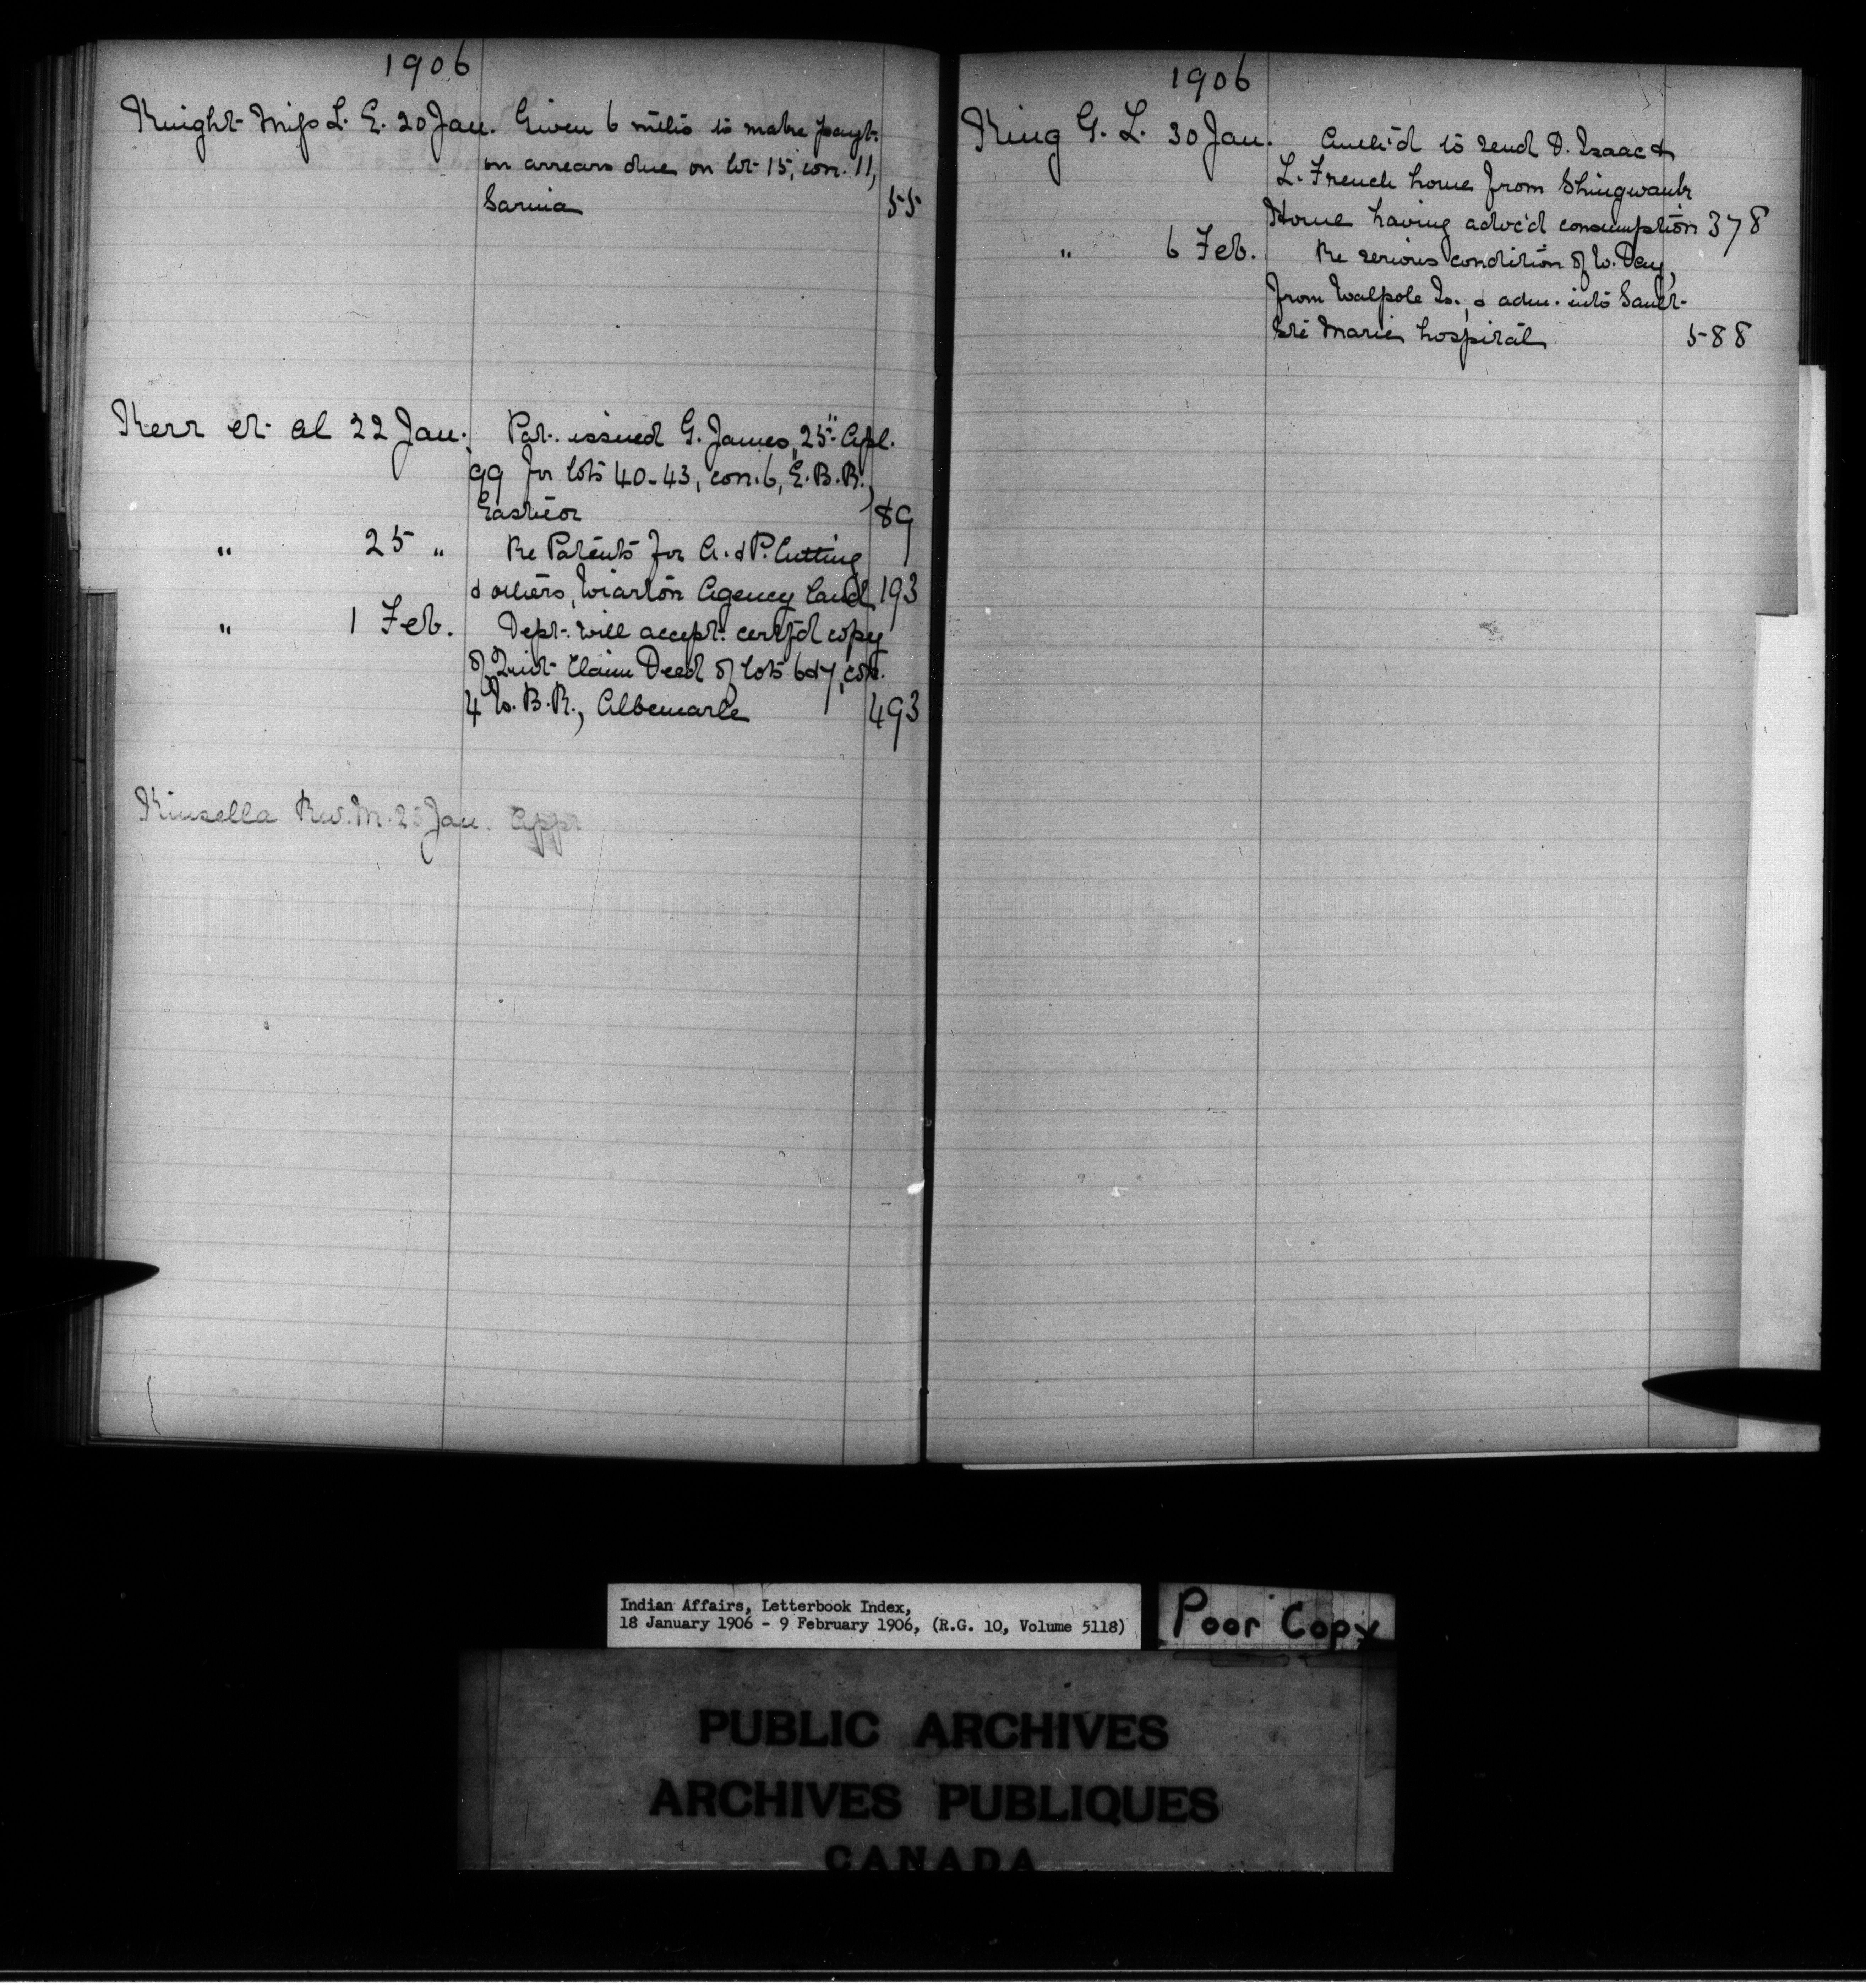 1906
Knight Miss L. E. 20 Jan. Given 6 mths to make payt.
on arrears due on lot 15, con. 11,
Sarnia 55
Kerr et al 22 Jan. Pat. issued G. James, 25" Apl.
99 for lots 40-43, con. 6, E.B.R.,
Eastnor 89
" 25 " Re Patents for A. & P. Cutting
& others, Wiarton Agency land 193
" 1 Feb. Dept. will accept certf'd copy
of Quit Claim Deed of lots 6&7, con.
4 W.B.R., Albemarle 493
Kinsella Rev. M. 25 Jan. App
1906
King G. L. 30 Jan. Auth'd to send D. Isaac &
L. French home from Shingwauk
Home having advc'd consumption 378
" 6 Feb. Re serious condition of W. Day,
from Walpole Is., & adm. into Sault
Ste Marie hospital 588
Indian Affairs, Letterbook Index,
18 January 1906 - 9 February 1906, (R.G. 10, Volume 5118)
Poor Copy
PUBLIC ARCHIVES
ARCHIVES PUBLIQUES
CANADA